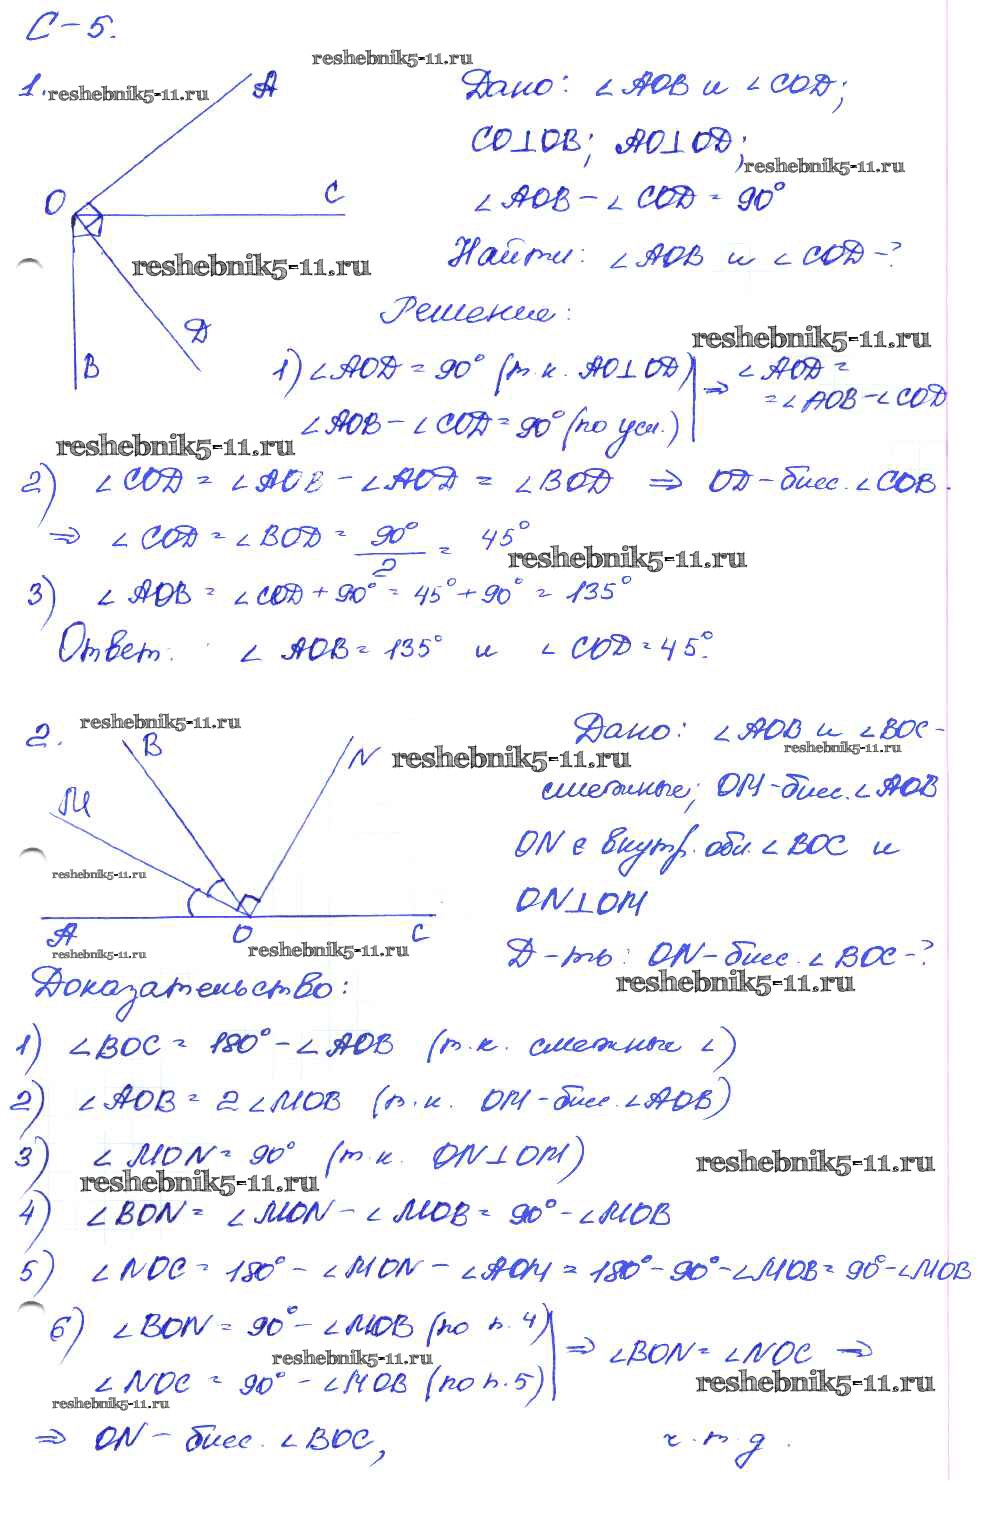 С-5.
reshebnik5-11.ru
1.
reshebnik5-11.ru
A
Дано: ∠AOB и ∠COD;
CO⊥OB; AO⊥OD;
reshebnik5-11.ru
O
C
∠AOB - ∠COD = 90°
reshebnik5-11.ru
Найти: ∠AOB и ∠COD-?
Решение:
D
B
reshebnik5-11.ru
1) ∠AOD = 90° (т.к. AO⊥OD) ⇒ ∠AOD =
∠AOB - ∠COD = 90° (по усл.) = ∠AOB - ∠COD
reshebnik5-11.ru
2) ∠COD = ∠AOB - ∠AOD = ∠BOD ⇒ OD - бисс. ∠COB.
⇒ ∠COD = ∠BOD = 90°/2 = 45°
reshebnik5-11.ru
3) ∠AOB = ∠COD + 90° = 45° + 90° = 135°
Ответ: ∠AOB = 135° и ∠COD = 45°.
2.
reshebnik5-11.ru
B
N
reshebnik5-11.ru
Дано: ∠AOB и ∠BOC -
reshebnik5-11.ru
M
смежные; OM - бисс. ∠AOB
ON ∈ внутр. обл. ∠BOC и
reshebnik5-11.ru
ON⊥OM
A
O
C
reshebnik5-11.ru
reshebnik5-11.ru
Д-ть: ON - бисс. ∠BOC -?
reshebnik5-11.ru
Доказательство:
1) ∠BOC = 180° - ∠AOB (т.к. смежные ∠)
2) ∠AOB = 2∠MOB (т.к. OM - бисс. ∠AOB)
3) ∠MON = 90° (т.к. ON⊥OM)
reshebnik5-11.ru
reshebnik5-11.ru
4) ∠BON = ∠MON - ∠MOB = 90° - ∠MOB
5) ∠NOC = 180° - ∠MON - ∠AOM = 180° - 90° - ∠MOB = 90° - ∠MOB
6) ∠BON = 90° - ∠MOB (по п.4) ⇒ ∠BON = ∠NOC ⇒
reshebnik5-11.ru
∠NOC = 90° - ∠MOB (по п.5)
reshebnik5-11.ru
reshebnik5-11.ru
⇒ ON - бисс. ∠BOC, ч.т.д.